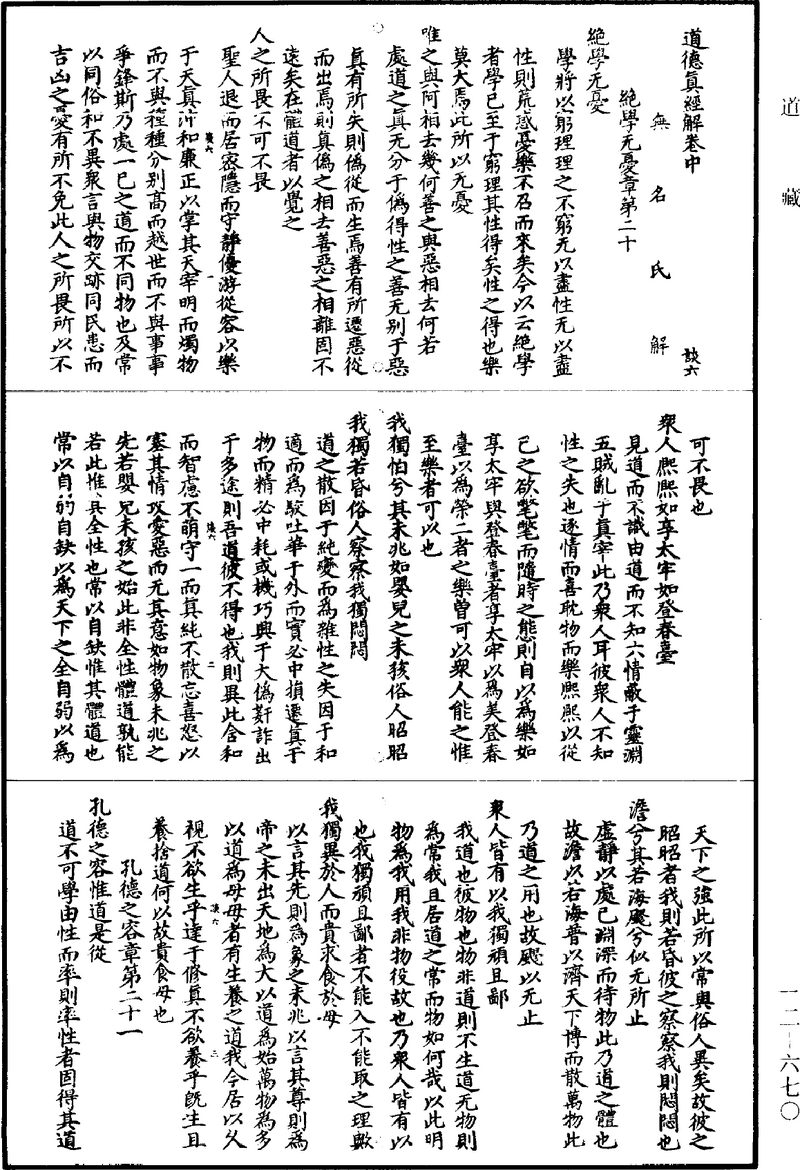 道藏
一二—六七〇
道德眞經解卷中
談六
無名氏解
絶學无憂章第二十
絶學无憂
學將以窮理理之不窮无以盡性无以盡
性則荒惑憂樂不召而來矣今以云絶學
者學已至于窮理其性得矣性之得也樂
莫大焉此所以无憂
唯之與阿相去幾何善之與惡相去何若
處道之眞无分于僞得性之善无别于惡
眞有所失則僞從而生焉善有所遷惡從
而出焉則眞僞之相去善惡之相離固不
遠矣在體道者以覺之
人之所畏不可不畏
聖人退而居密隱而守静優游從容以樂
于天眞沖和廉正以掌其天宰明而燭物
而不與種種分别高而越世而不與事事
爭鋒斯乃處一己之道而不同物也及常
以同俗和不異衆言與物交跡同民患而
吉凶之憂有所不免此人之所畏所以不
可不畏也
衆人熈熈如享太牢如登春臺
見道而不識由道而不知六情蔽于靈淵
五賊亂于眞宰此乃衆人耳彼衆人不知
性之失也逐情而喜耽物而樂熈熈以從
己之欲氅氅而隨時之態則自以爲樂如
享太牢與登春臺者享太牢以爲美登春
臺以爲榮二者之樂曽可以衆人能之惟
至樂者可以也
我獨怕兮其未兆如嬰兒之未孩俗人昭昭
我獨若昏俗人察察我獨悶悶
道之散因于純變而爲雜性之失因于和
適而爲駮吐華于外而實必中損遷眞于
物而精必中耗或機巧興于大僞姧詐出
于多途則吾道彼不得也我則異此含和
而智慮不萌守一而眞純不散忘喜怒以
塞其情攻愛惡而无其意如物象未兆之
先若嬰兒未孩之始此非全性體道孰能
若此惟其全性也常以自缺惟其體道也
常以自弱自缺以爲天下之全自弱以爲
天下之強此所以常與俗人異矣故彼之
昭昭者我則若昏彼之察察我則悶悶也
澹兮其若海飂兮似无所止
虛静以處己淵深而待物此乃道之體也
故澹以右海普以濟天下博而散萬物此
乃道之用也故飂以无止
衆人皆有以我獨頑且鄙
我道也彼物也物非道則不生道无物則
爲常我且居道之常而物如何哉以此明
物爲我用我非物役故也乃衆人皆有以
也我獨頑且鄙者不能入不能取之理歟
我獨異於人而貴求食於母
以言其先則爲象之未兆以言其尊則爲
帝之未出天地爲大以道爲始萬物爲多
以道爲母母者有生養之道我今居以父
視不欲生乎達于修眞不欲養乎旣生且
養捨道何以故貴食母也
孔德之容章第二十一
孔德之容惟道是從
道不可學由性而率則率性者固得其道
談六
一
談六
二
談六
三